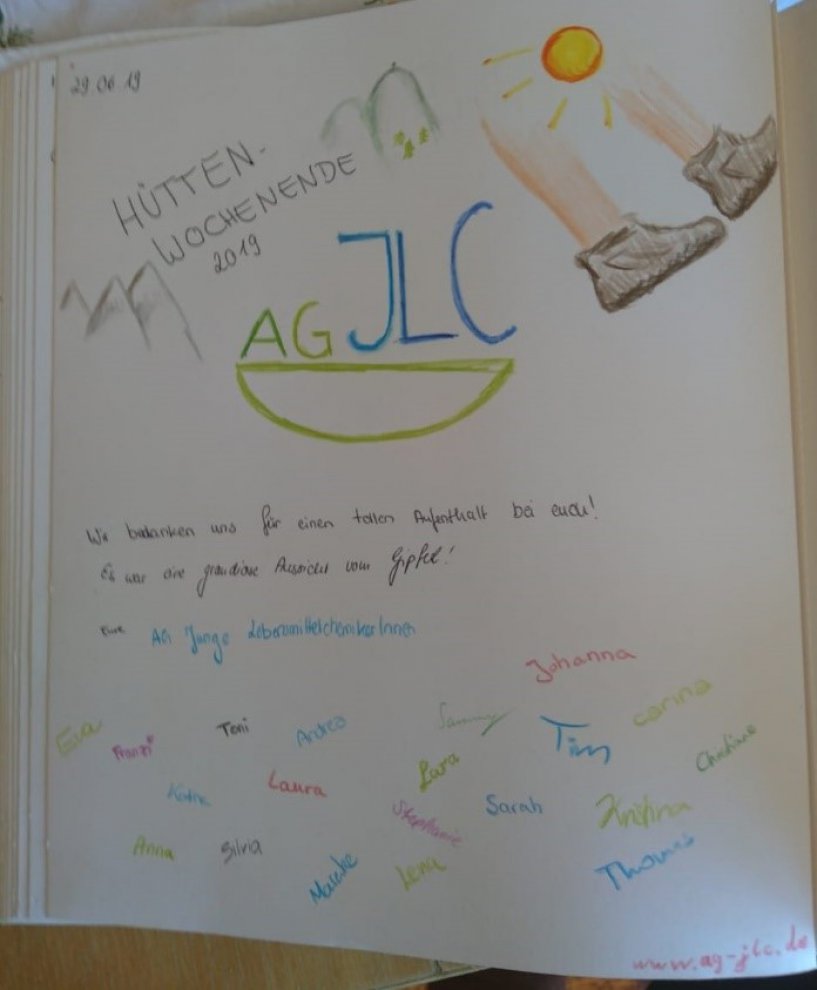 29.06.19
HÜTTEN-
WOCHENENDE
2019
AG JLC
Wir bedanken uns für einen tollen Aufenthalt bei euch!
Es war eine grandiose Aussicht vom Gipfel!
Eure AG Junge LebensmittelchemikerInnen
Johanna
Eva Franzi Toni Andrea Sammy Tim Carina
Christiane
Laura Lara
Stephanie Sarah Kristina
Anna Silvia
Mareike Lena Thomas
www.ag-jlc.de